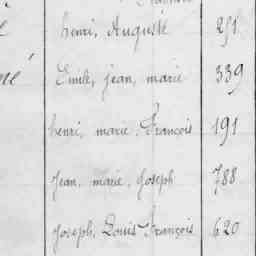 henri, Auguste 251
Emile, jean, marie 339
henri, marie, François 191
Jean, marie, Joseph 788
Joseph, Louis François 620